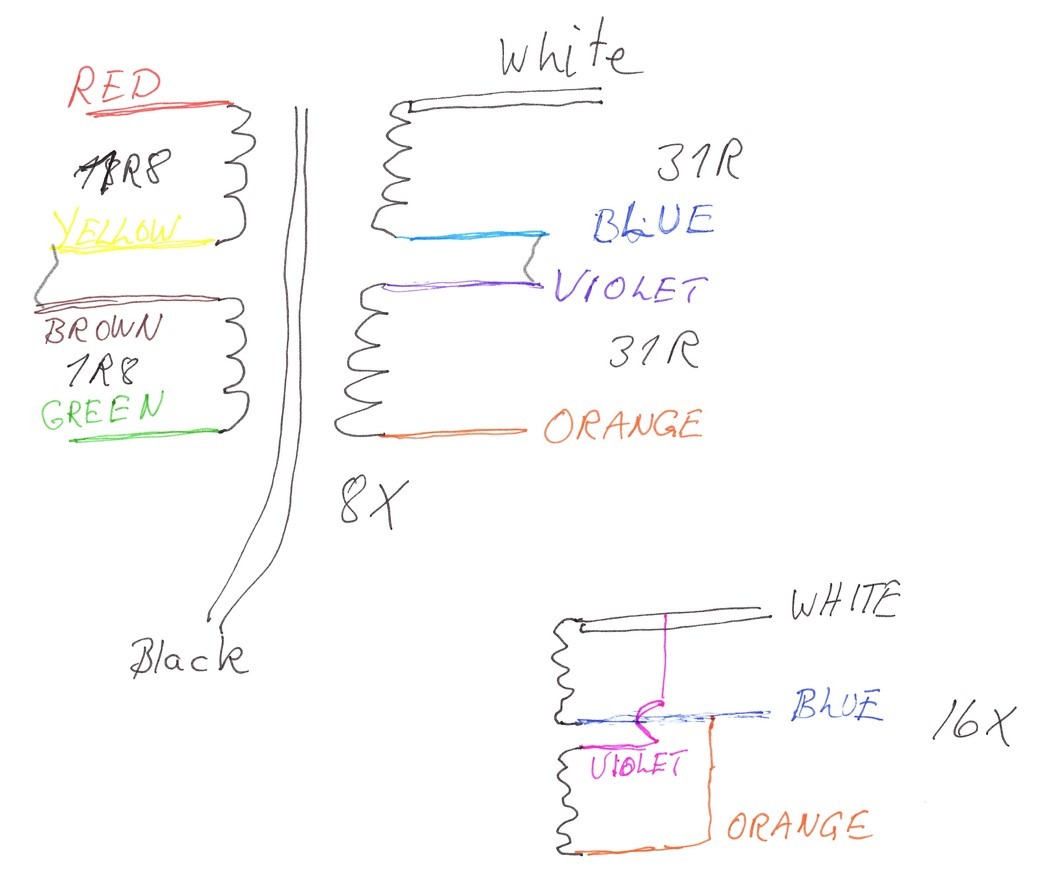 White
RED
31R
YELLOW
BLUE
VIOLET
BROWN
31R
1R8
GREEN
ORANGE
8X
WHITE
Black
BLUE
16X
VIOLET
ORANGE